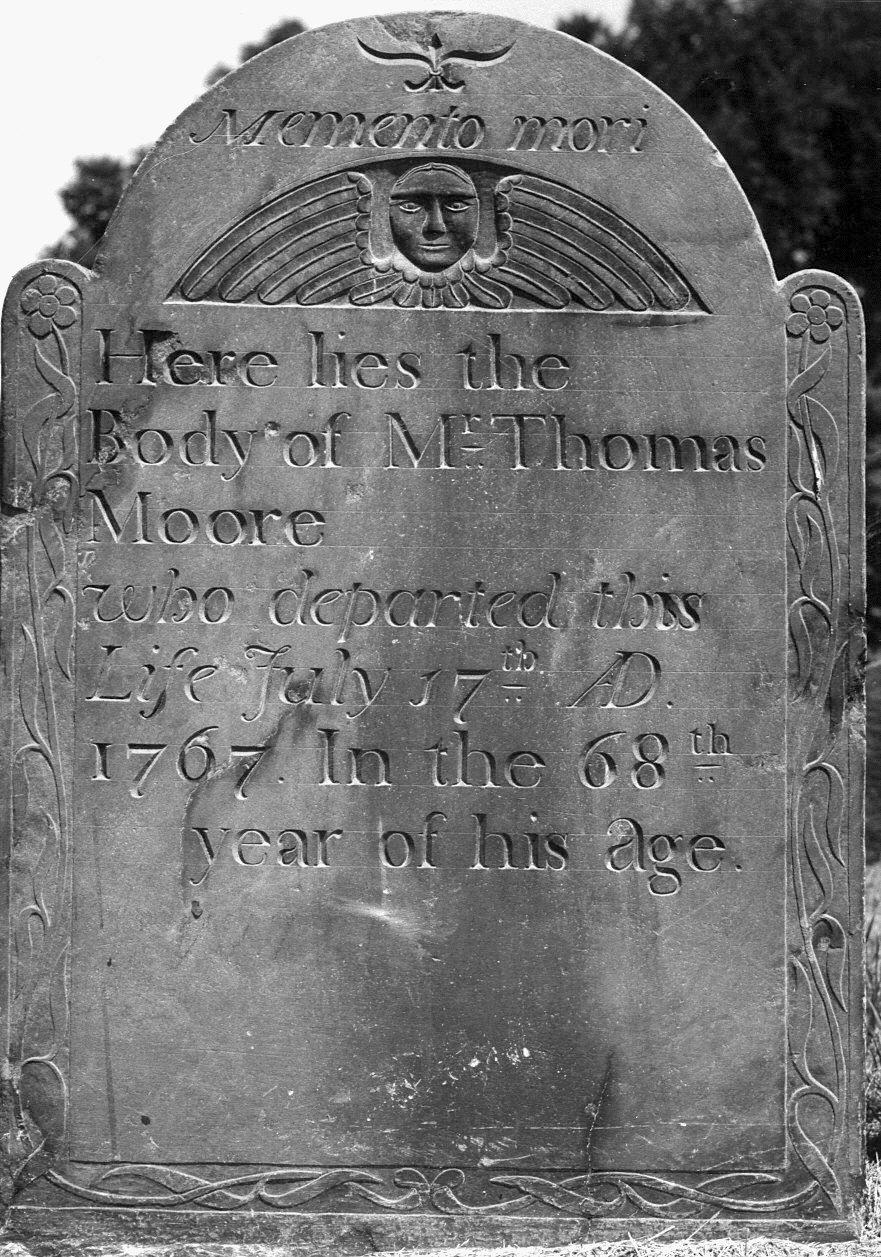 Memento mori
Here lies the
Body of Mr. Thomas
Moore
who departed this
Life July 17th AD.
1767. In the 68th
year of his age.